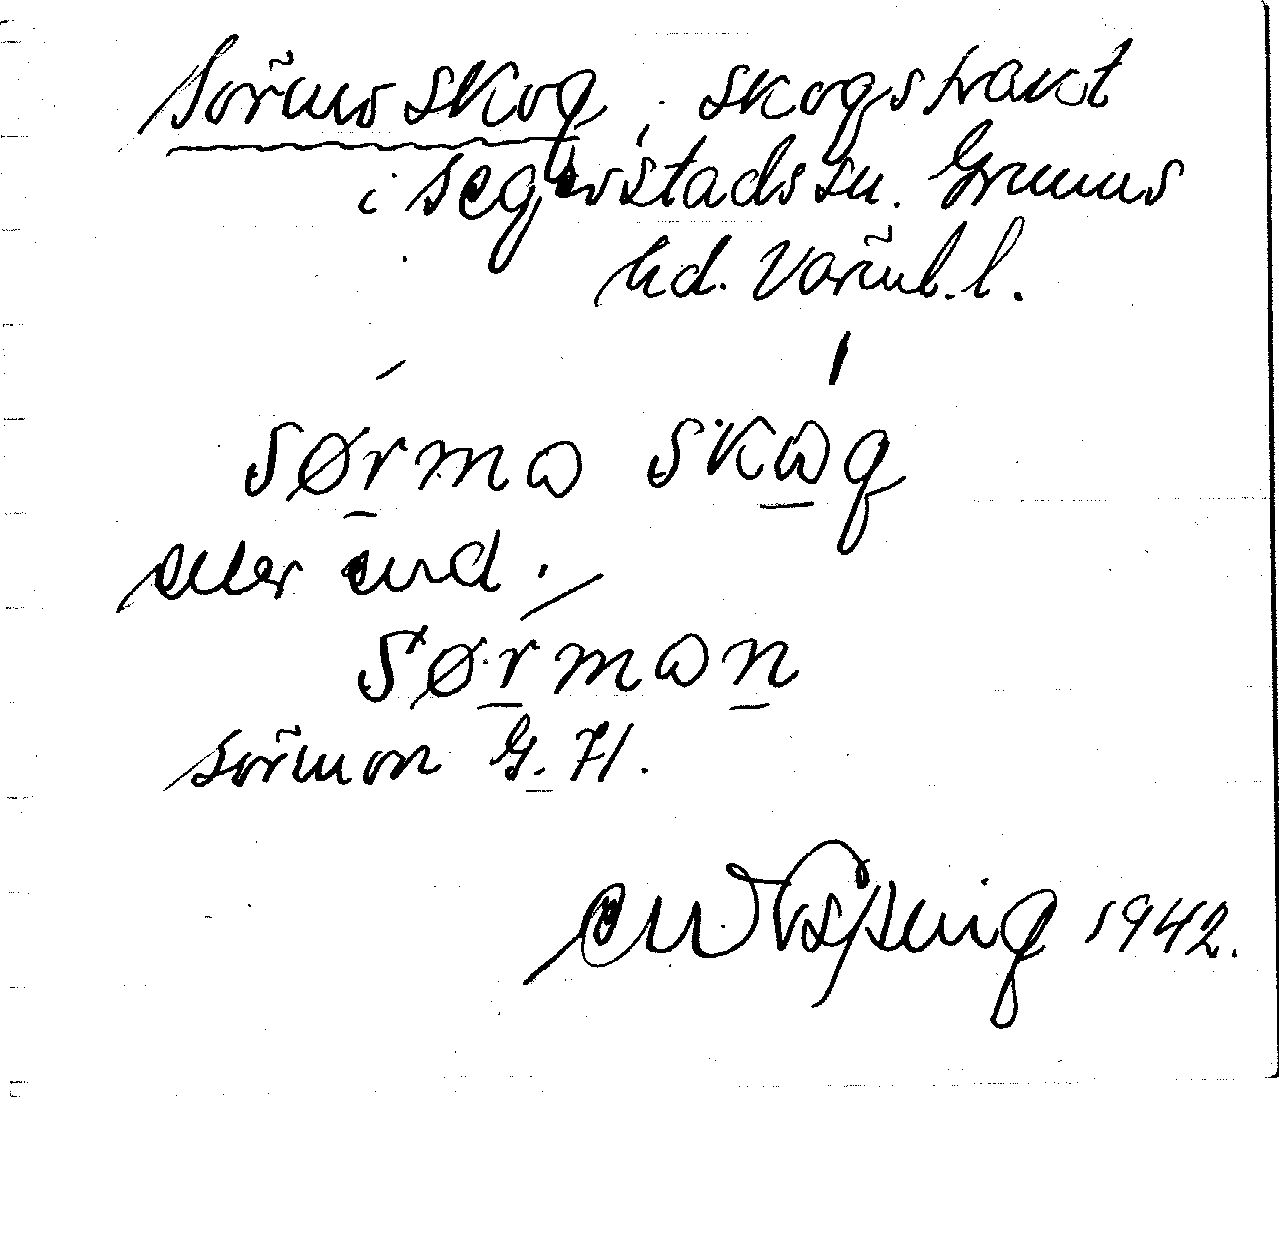 Sörmoskog, skogstrakt
i Segerstads sn. Grums
hd. Värml. l.
sørmɷ skɷg
eller end.
sørmɷn
Sörmon G. K.
1942.